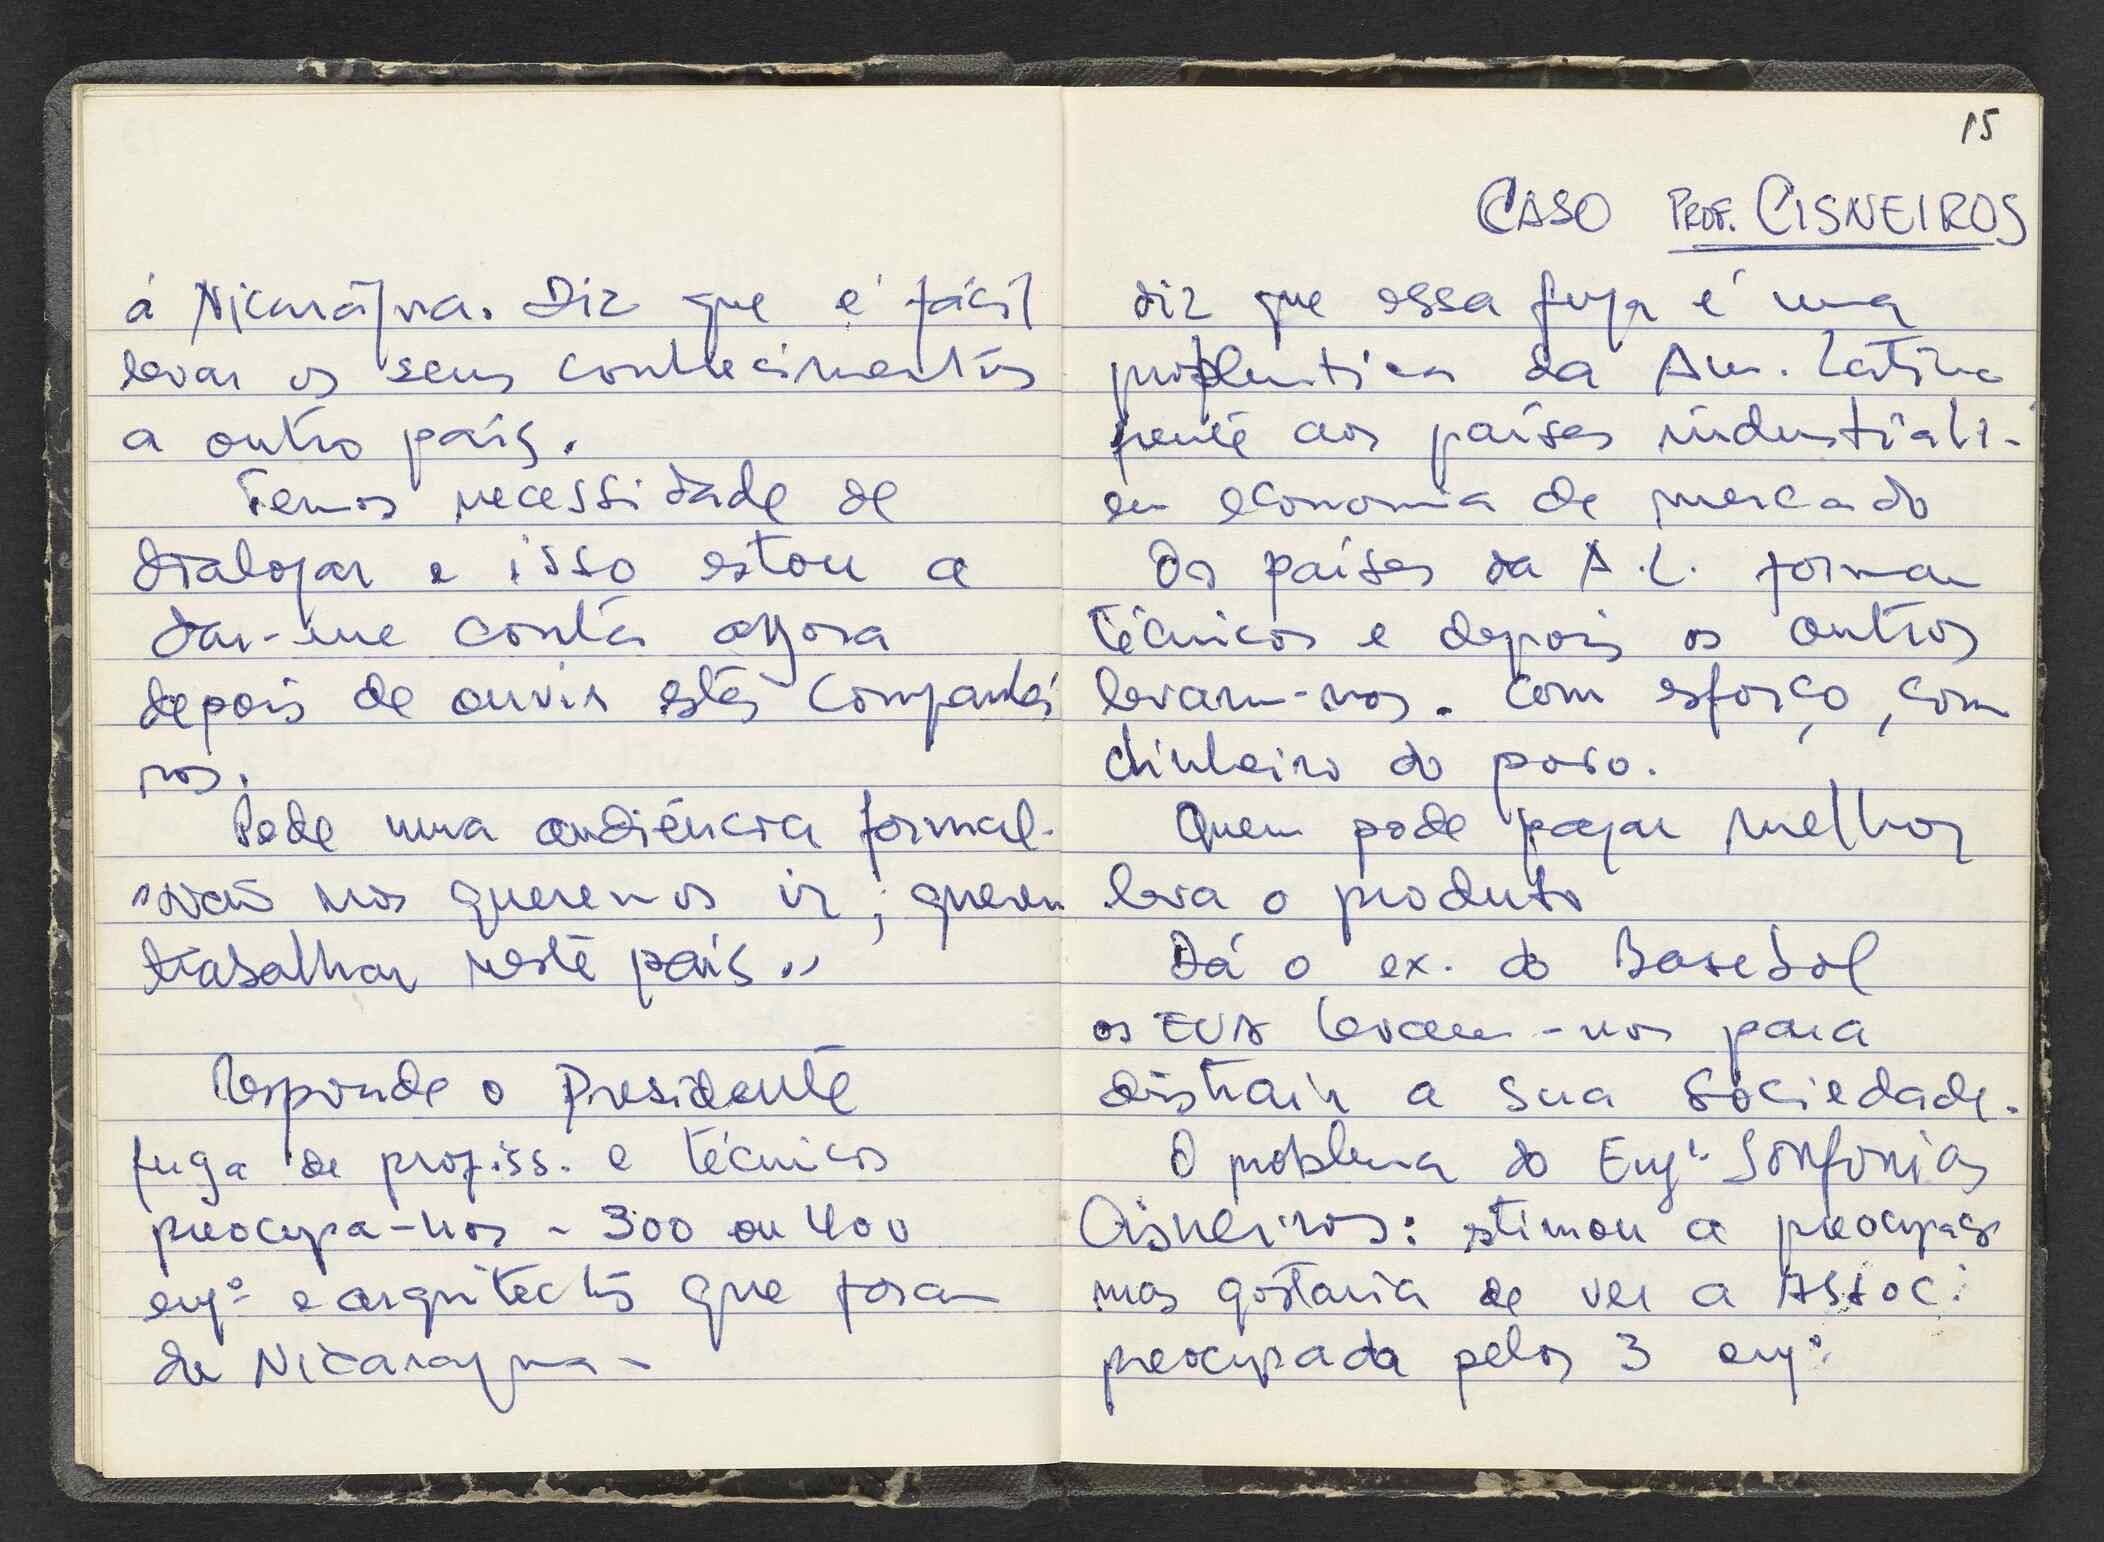 á Nicarágua. Diz que é fácil
levar os seus conhecimentos
a outro país.
Temos necessidade de
dialogar e isso estou a
dar-me conta agora
depois de ouvir estes companhei
ros.
Pede uma audiência formal.
"Não nos queremos ir; querem
trabalhar neste país"
Responde o Presidente
fuga de profiss. e técnicos
preocupa-nos - 300 ou 400
engº e arquitectos que foram
de Nicaragua -
15
CASO PROF. CISNEIROS
diz que essa fuga é uma
da Am. Latina
frente aos países industriali-
em economia de mercado
Os países da A.L. formam
técnicos e depois os outros
levam-nos. Com esforço, com
dinheiro do povo.
Quem pode pagar melhor
leva o produto
Dá o ex. do Basebol
os EUA levam-nos para
distrair a sua sociedade.
O problema do Engº
Cisneiros: estimou a
mas gostaria de ver a Assoc.
preocupada pelos 3 engº